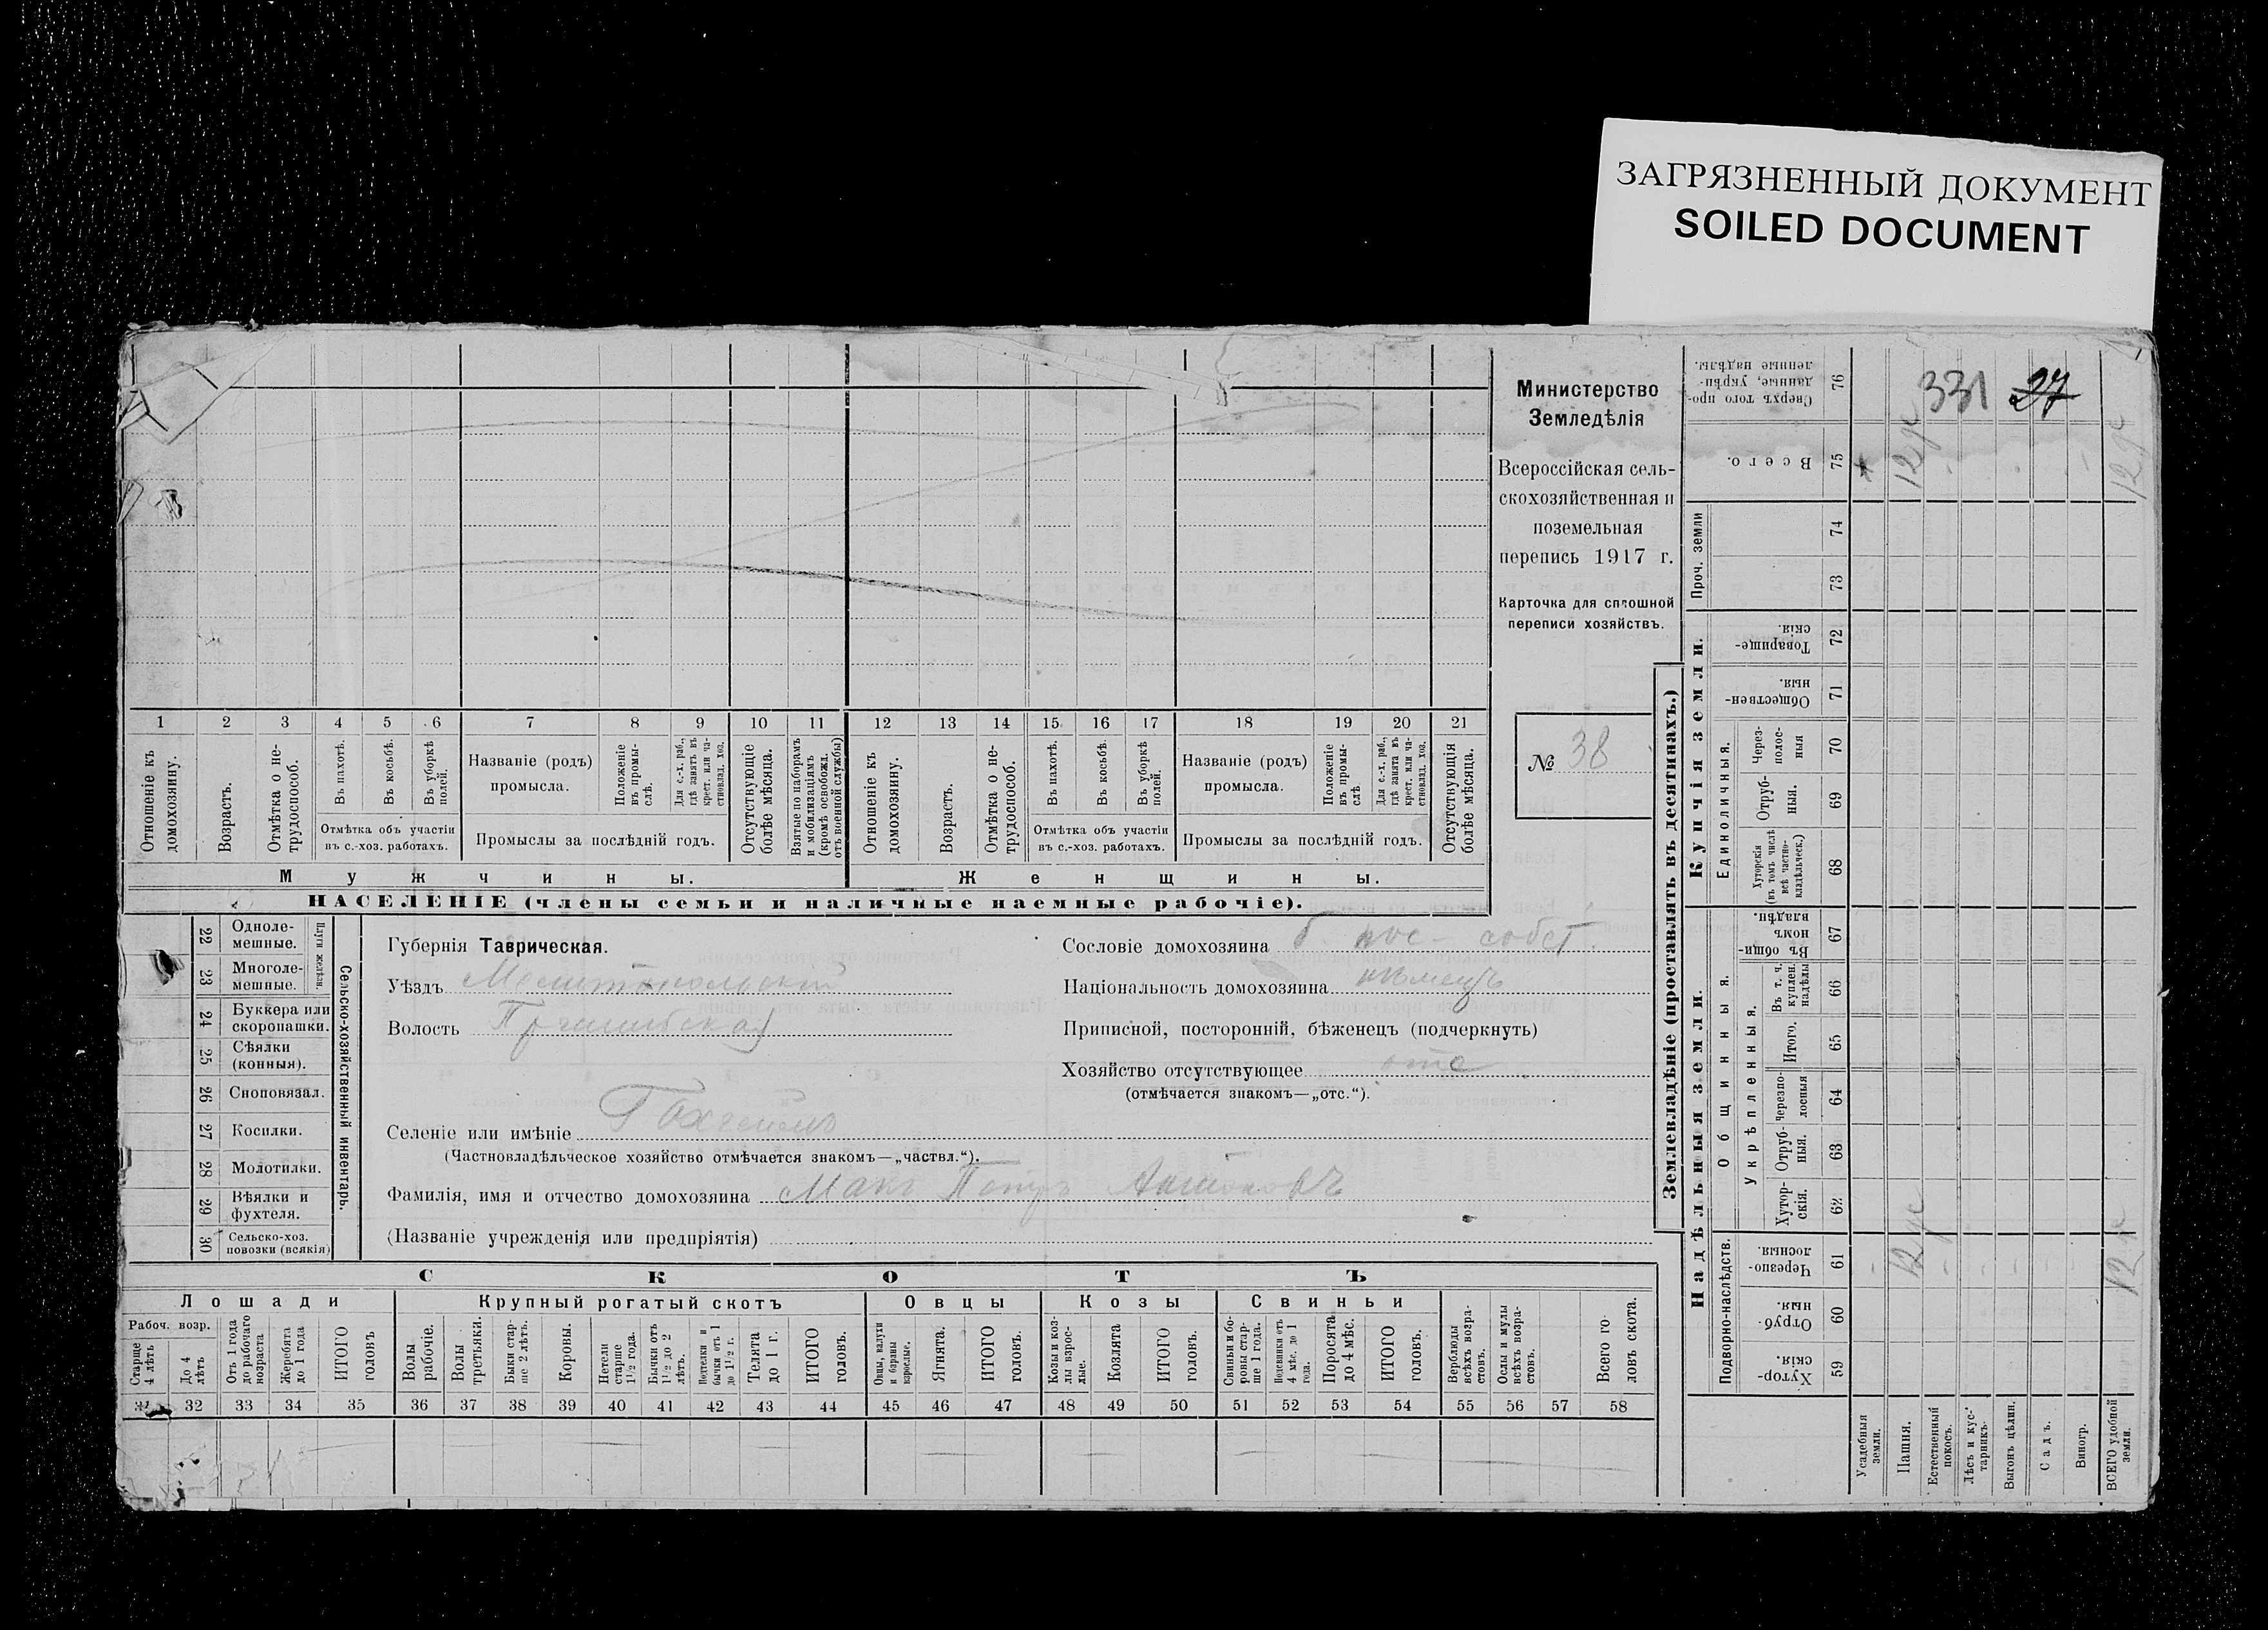 ЗАГРЯЗНЕННЫЙ ДОКУМЕНТ
SOILED DOCUMENT
Министерство
Земледѣлія
Всероссійская сель-
скохозяйственная и
поземельная
перепись 1917 г.
Карточка для сплошной
переписи хозяйствъ.
№ 38
1 2 3 4 5 6 7 8 9 10 11 12 13 14 15 16 17 18 19 20 21
Отношеніе къ
домохозяину.
Возрастъ.
Отмѣтка о не-
трудоспособ.
Въ пахотѣ.
Въ косьбѣ.
Въ уборкѣ
полей.
Отмѣтка объ участіи
въ с.-хоз. работахъ.
Названіе (родъ)
промысла.
Положеніе
въ промы-
слѣ.
Для с.-х. раб.,
гдѣ занятъ въ
крест. или ча-
стновлад. хоз.
Промыслы за послѣдній годъ.
Отсутствующіе
болѣе мѣсяца.
Взятые по наборамъ
и мобилизаціямъ
(кромѣ освобожд.
отъ военной службы)
Отношеніе къ
домохозяину.
Возрастъ.
Отмѣтка о не-
трудоспособ.
Въ пахотѣ.
Въ косьбѣ.
Въ уборкѣ
полей.
Отмѣтка объ участіи
въ с.-хоз. работахъ.
Названіе (родъ)
промысла.
Положеніе
въ промы-
слѣ
Для с.-х. раб.,
гдѣ занята въ
крест. или ча-
стновлад. хоз.
Промыслы за послѣдній годъ.
Отсутствующія
болѣе мѣсяца.
Мужчины.
Женщины.
НАСЕЛЕНІЕ (члены семьи и наличные наемные рабочіе).
22 Одноле-
мешные.
23 Многоле-
мешные.
Плуги желѣзн.
24 Буккера или
скоропашки.
25 Сѣялки
(конныя).
26 Сноповязал.
27 Косилки.
28 Молотилки.
29 Вѣялки и
фухтеля.
30 Сельско-хоз.
повозки (всякія)
Сельско-хозяйственный инвентарь.
Губернія Таврическая.
Уѣздъ Мелитопольскій
Волость Пришибская
Селеніе или имѣніе
(Частновладѣльческое хозяйство отмѣчается знакомъ—„частвл.“).
Фамилія, имя и отчество домохозяина Макъ Петръ Антоновъ
(Названіе учрежденія или предпріятія)
Сословіе домохозяина б. пос- собст.
Національность домохозяина нѣмецъ
Приписной, посторонній, бѣженецъ (подчеркнуть)
Хозяйство отсутствующее отс
(отмѣчается знакомъ—„отс.“).
СКОТЪ
Лошади
Крупный рогатый скотъ
Овцы
Козы
Свиньи
Рабоч. возр.
Старше
4 лѣтъ
До 4
лѣтъ
Отъ 1 года
до рабочаго
возраста
Жеребята
до 1 года
ИТОГО
головъ
Волы
рабочіе.
Волы
третьяки.
Быки стар-
ше 2 лѣтъ.
Коровы.
Нетели
старше
1½ года.
Бычки отъ
1½ до 2
лѣтъ.
Нетелки и
бычки отъ 1
до 1½ г.
Телята
до 1 г.
ИТОГО
головъ.
Овцы, валухи
и бараны
взрослые.
Ягнята.
ИТОГО
головъ.
Козы и коз-
лы взрос-
лые.
Козлята
ИТОГО
головъ.
Свиньи и бо-
ровы стар-
ше 1 года.
Подсвинки отъ
4 мѣс. до 1
года.
Поросята
до 4 мѣс.
ИТОГО
головъ.
Верблюды
всѣхъ возра-
стовъ.
Ослы и мулы
всѣхъ возра-
стовъ.
Всего го-
ловъ скота.
31 32 33 34 35 36 37 38 39 40 41 42 43 44 45 46 47 48 49 50 51 52 53 54 55 56 57 58
Землевладѣніе (проставлять въ десятинахъ.)
Купчія земли.
Надѣльныя земли.
Сверхъ того про-
данные, укрѣп-
ленные надѣлы.
76
331 27
Всего.
75
12 де
12 де
Проч. земли
74
73
Товарище-
скія.
72
Обществен-
ныя.
71
Единоличныя.
Через-
полос-
ныя
70
Отруб-
ныя.
69
Хуторскія
(въ томъ числѣ
всѣ частно-
владѣльческ.)
68
Общинныя.
Въ общин-
номъ
владѣн.
67
Укрѣпленныя.
Въ т. ч.
куплен.
надѣлы
66
Итого.
65
Черезпо-
лосныя
64
Отруб-
ныя.
63
Хутор-
скія.
62
Подворно-наслѣдств.
Черезпо-
лосныя.
61
12 де
Отруб-
ныя.
60
Хутор-
скія.
59
Усадебныя
земли.
Пашня.
Естественный
покосъ.
Лѣсъ и кус-
тарникъ.
Выгонъ цѣлин.
Садъ.
Виногр.
ВСЕГО удобной
земли.